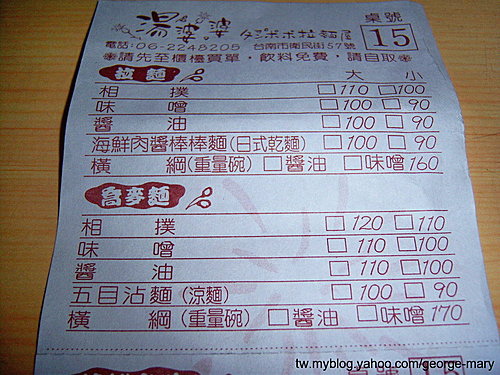 湯婆婆 拉麵屋 桌號
電話:06-2248205 台南市衛民街57號 15
※請先至櫃檯買單,飲料免費,請自取※
拉麵 大 小
相撲 □110 □100
味噌 □100 □90
醬油 □100 □90
海鮮肉醬棒棒麵(日式乾麵) □100 □90
橫綱(重量碗) □醬油 □味噌160
蕎麥麵
相撲 □120 □110
味噌 □110 □100
醬油 □110 □100
五目沾麵(涼麵) □100 □90
橫綱(重量碗) □醬油 □味噌170
tw.myblog.yahoo.com/george-mary